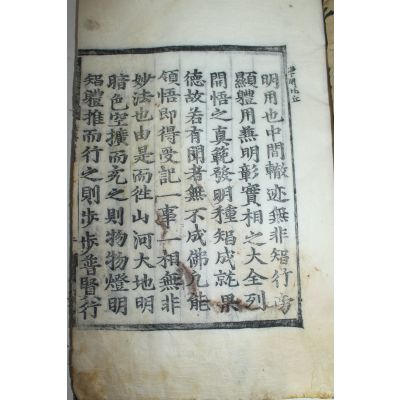 明用也中間轍迹無非智行旁
顯體用兼明彰實相之大全列
開悟之真範發明種智成就果
德故若有聞者無不成佛凡能
領悟即得受記一事一相無非
妙法也由是而徃山河大地明
暗色空擴而充之則物物燈明
智體推而行之則步步普賢行